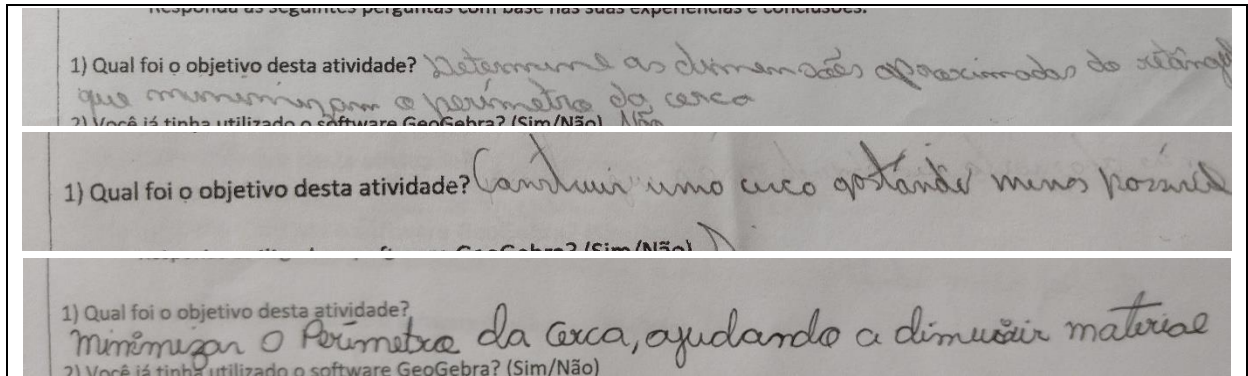 Responda as seguintes perguntas com base nas suas experiências e conclusões.
1) Qual foi o objetivo desta atividade? Determine as dimensões aproximadas do retângul
que minimizam o perímetro da cerca
2) Você já tinha utilizado o software GeoGebra? (Sim/Não) Não
1) Qual foi o objetivo desta atividade? Construir uma cerca gastando menos possível
GeoGebra? (Sim/Não) N
1) Qual foi o objetivo desta atividade?
Minimizar o Perímetro da Cerca, ajudando a dimuir material
2) Você já tinha utilizado o software GeoGebra? (Sim/Não)